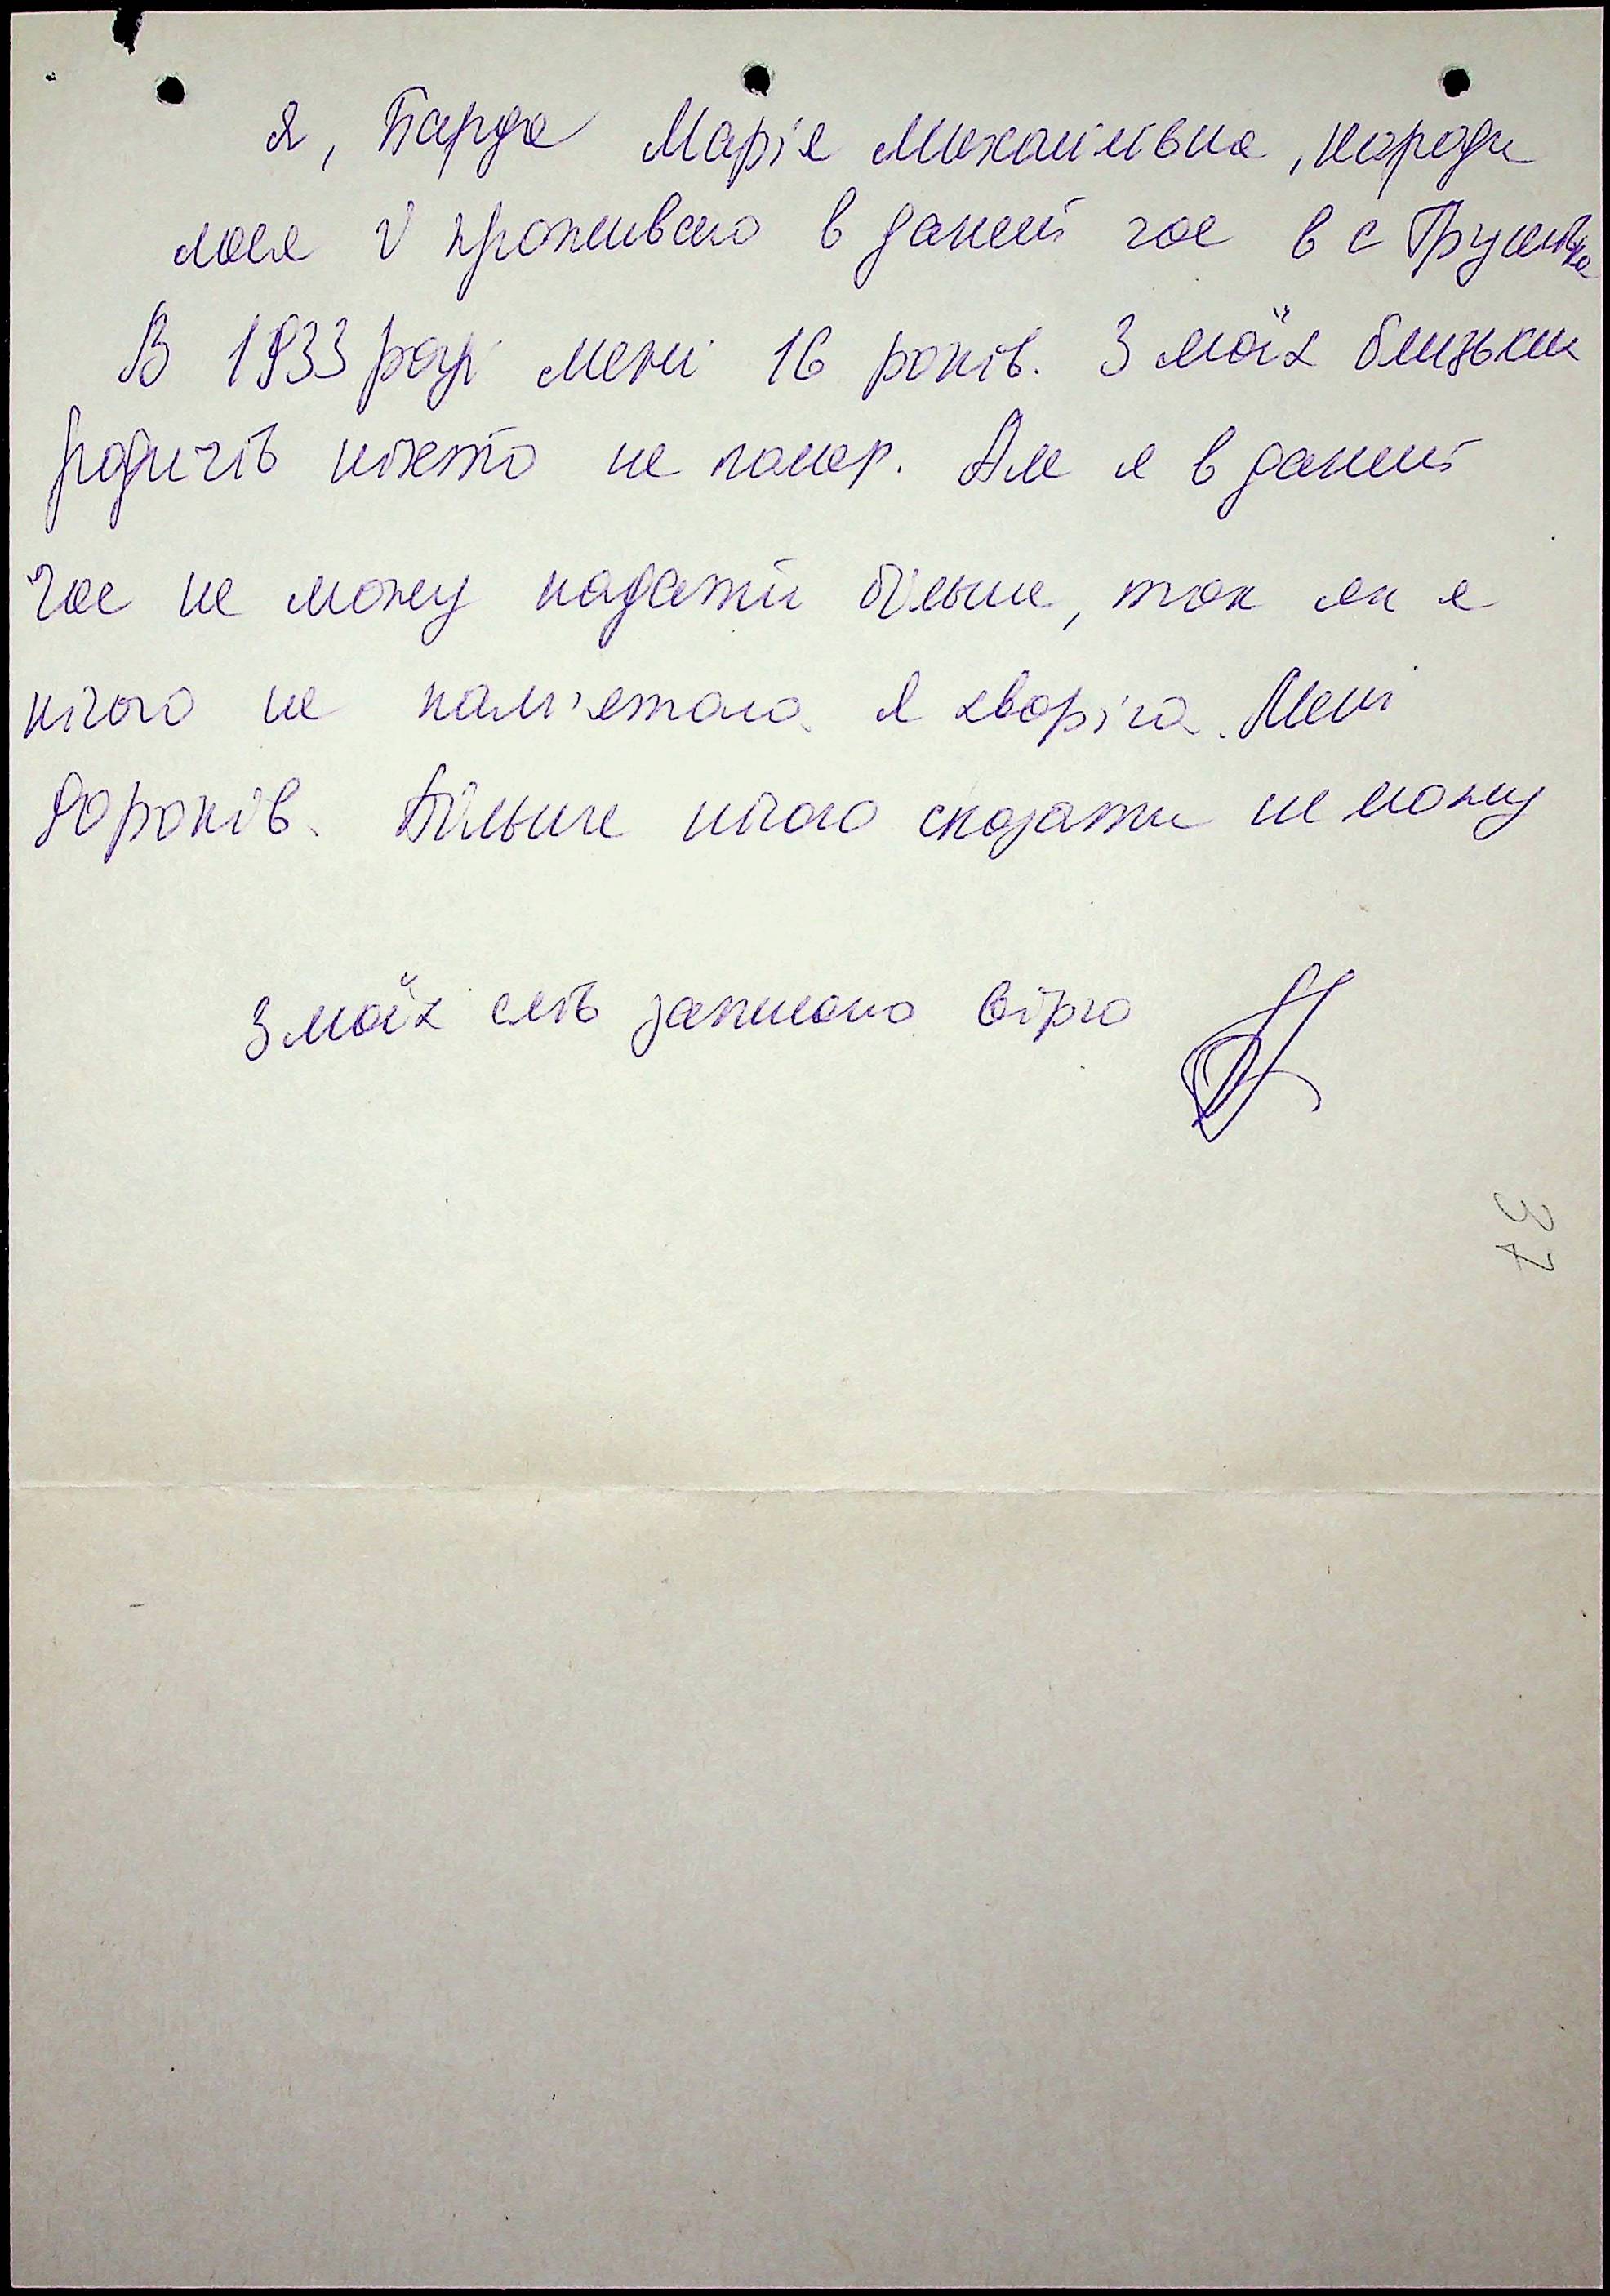 Я, Барда Марія Михайлівна, народи
лася і проживаю в даний час в с Трушки
В 1933 році мені 16 років. З моїх близьких
родичів ніхто не помер. Але я в даний
час не можу надати більше, так як я
нічого не пам'ятаю. Я хворіла. Мені
90 років. Більше нічого сказати не можу
З моїх слів записано вірно
37